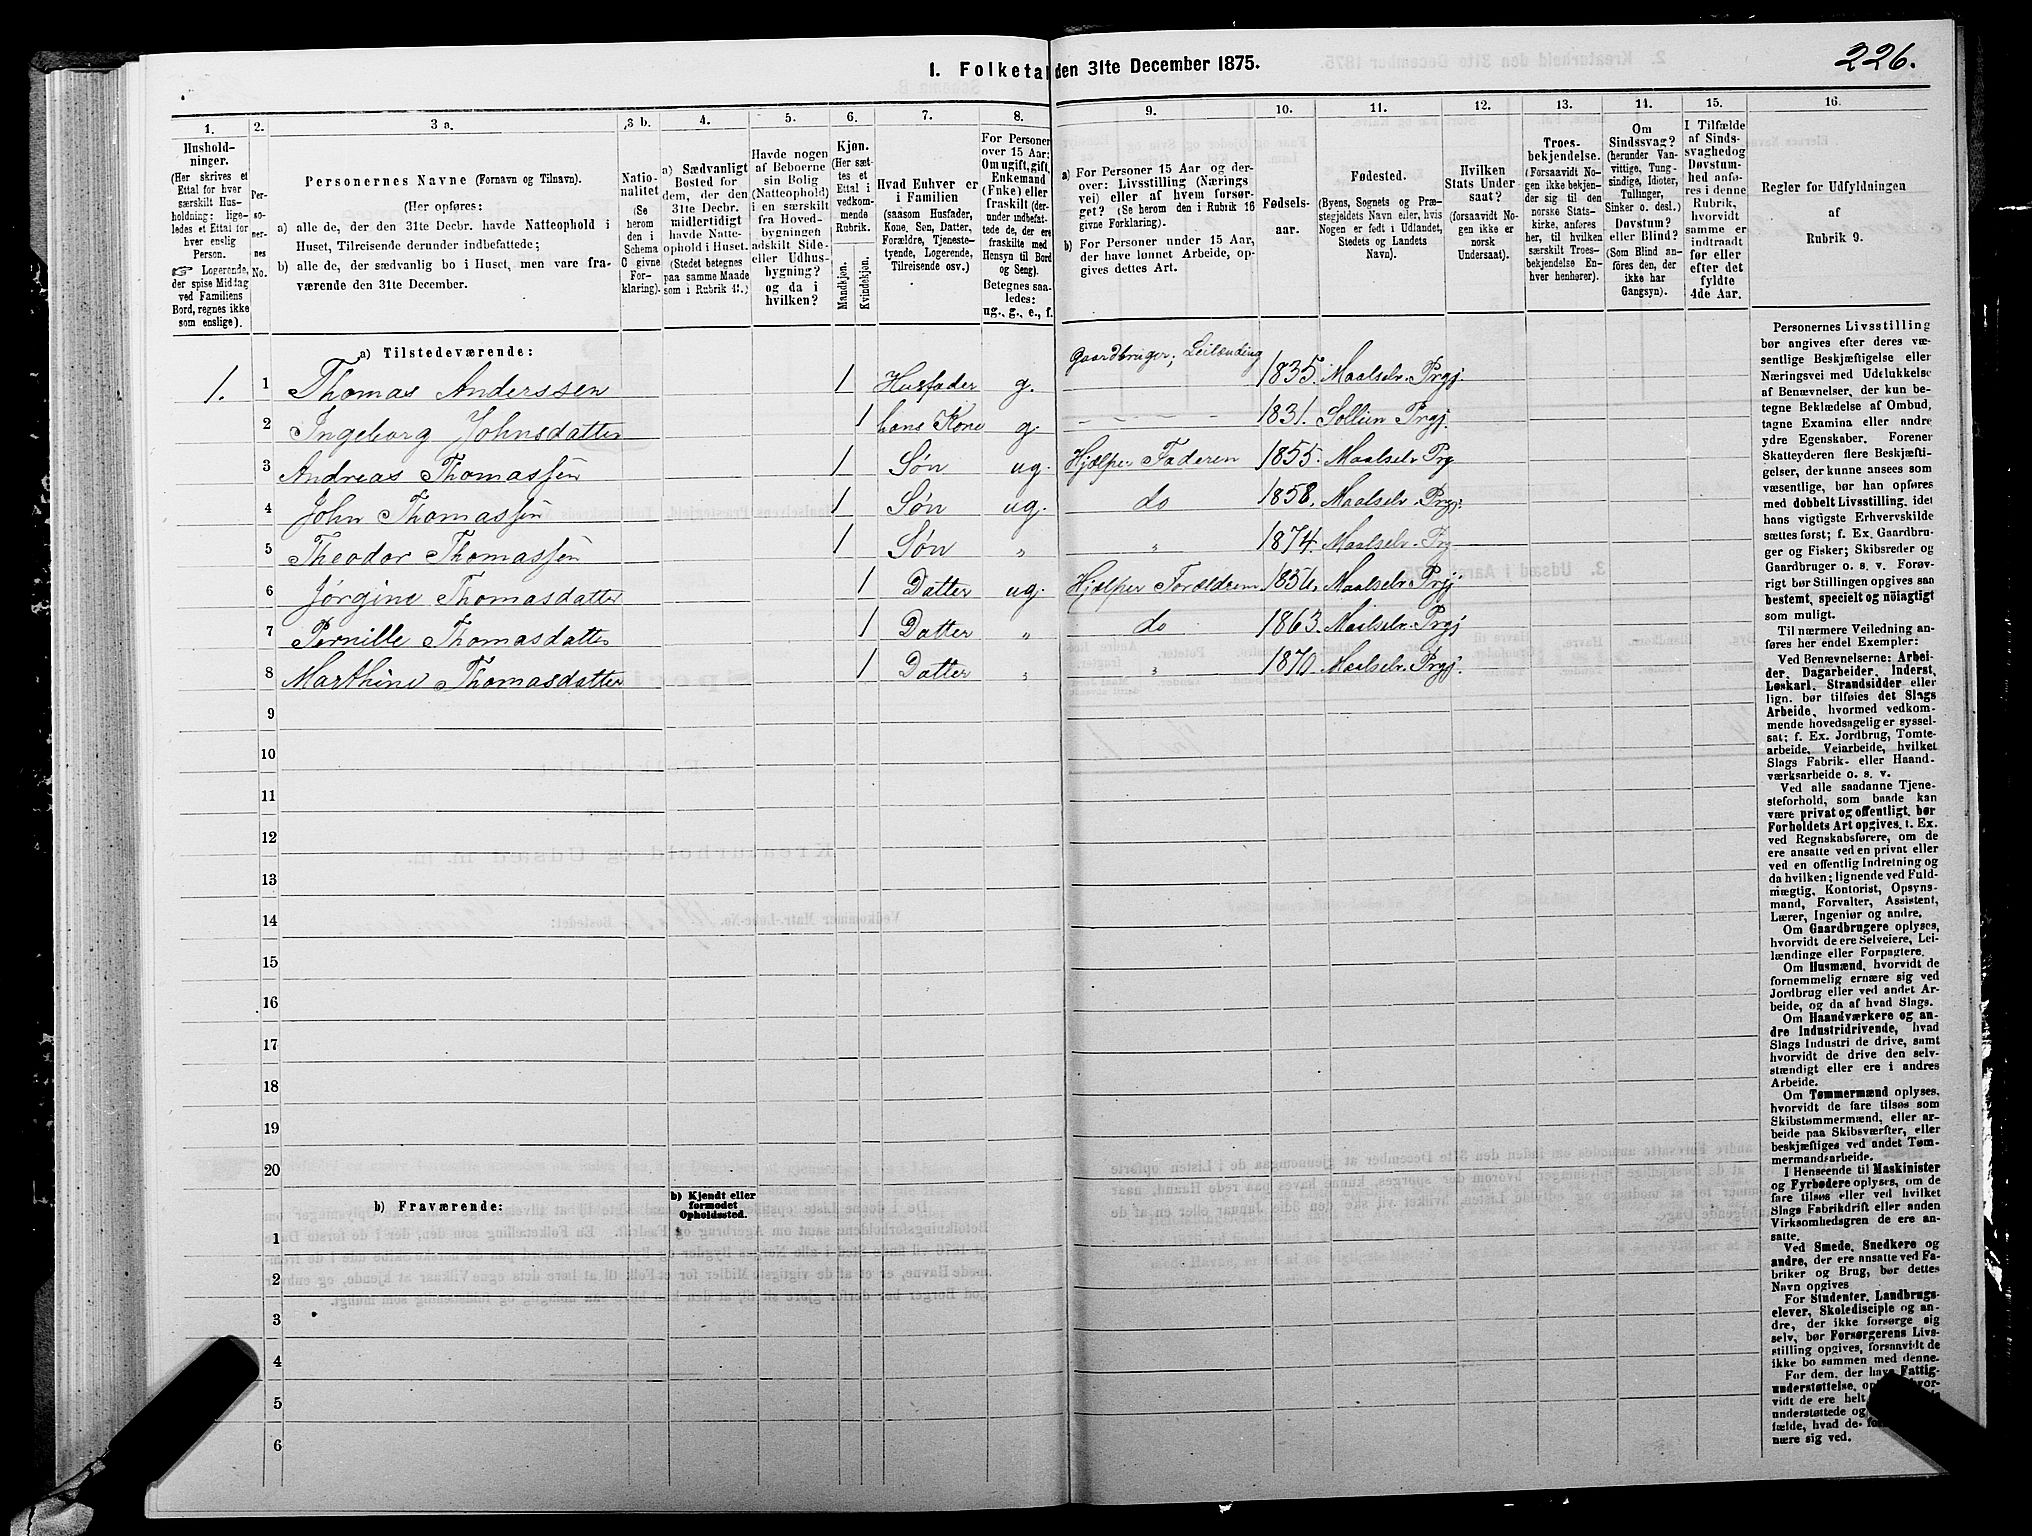 226.
1. Folketa den 31te December 1875.
1. 2. 3 a. 3 b. 4. 5. 6. 7. 8. 9. 10. 11. 12. 13. 14. 15. 16.
Hushold-
ninger.
(Her skrives et
Ettal for hver
særskilt Hus-
holdning: lige-
ledes et Ettal for
hver enslig
Person.
☞ Logerende,
der spise Middag
ved Familiens
Bord, regnes ikke
som enslige).
Per-
so-
ner-
nes
No.
Personernes Navne (Fornavn og Tilnavn).
(Her opføres:
a) alle de, der den 31te Decbr. havde Natteophold i
Huset, Tilreisende derunder indbefattede;
b) alle de, der sædvanlig bo i Huset, men vare fra-
værende den 31te December.
Natio-
nalitet
(Se
herom
den i
Schema
C givne
For-
klaring).
a) Sædvanligt
Bosted for
dem, der den
31te Decbr.
midlertidigt
havde Natte-
ophold i Huset.
(Stedet betegnes
paa samme Maade
som i Rubrik 11.)
Havde nogen
af Beboerne
sin Bolig
(Natteophold)
i en særskilt
fra Hoved-
bygningen
adskilt Side-
eller Udhus-
bygning?
og da i
hvilken?
Kjøn.
(Her sæt-
tes et
Ettal i
vedkom-
mende
Rubrik.
Mandkjøn.
Kvindekjøn.
Hvad Enhver er
i Familien
(saasom Husfader,
Kone, Søn, Datter,
Forældre, Tjeneste-
tyende, Logerende,
Tilreisende osv.)
For Personer
over 15 Aar:
Om ugift, gift,
Enkemand
(Enke) eller
fraskilt (der-
under indbefat-
tede de, der ere
fraskilte med
Hensyn til Bord
og Seng).
Betegnes saa-
ledes:
ug., g., e., f.
a) For Personer 15 Aar og der-
over: Livsstilling (Nærings
vei) eller af hvem forsør-
get? (Se herom den i Rubrik 16
givne Forklaring).
b) For Personer under 15 Aar,
der have lønnet Arbeide, op-
gives dettes Art.
Fødsels-
aar.
Fødested.
(Byens, Sognets og Præ-
stegjeldets Navn eller, hvis
Nogen er født i Udlandet,
Stedets og Landets
Navn).
Hvilken
Stats Under
saat?
(forsaavidt No-
gen ikke er
norsk
Undersaat).
Troes-
bekjendelse.
(Forsaavidt No-
gen ikke bekjen-
der sig til den
norske Stats-
kirke, anføres
her, til hvilken
særskilt Troes-
bekjendelse En-
hver henhører).
Om
Sindssvag?
(herunder Van-
vittige, Tung-
sindige, Idioter,
Tullinger,
Sinker o. desl.)
Døvstum?
eller Blind?
(Som Blind an-
føres den, der
ikke har
Gangsyn).
I Tilfælde
af Sinds-
svaghed og
Døvstum-
hed anfø-
res i denne
Rubrik,
hvorvidt
samme er
indtraadt
før eller
efter det
fyldte
4de Aar.
Regler for Udfyldningen
af
Rubrik 9.
a) Tilstedeværende:
Gaardbruger, Leilænding
1. 1 Thomas Anderssen 1 Husfader g. 1835. Maalselv. Prgj.
2 Ingeborg Johnsdatter 1 hans Kone g. 1831. Sollien Prgj.
3 Andreas Thomassen 1 Søn ug. Hjælper Faderen 1855. Maalselv Prg
4 John Thomassen 1 Søn ug. do 1858. Maalselv. Prgj.
5 Theodor Thomassen 1 Søn " " 1874. Maalselv. Prg
6 Jørgine Thomasdatter 1 Datter ug. Hjælper Forældrene 1856. Maalselv. Prgj
7 Pernille Thomasdatter 1 Datter " do 1863. Maalselv. Prgj
8 Marthine Thomasdatter 1 Datter " " 1870. Maalselv. Prgj.
9
10
11
12
13
14
15
16
17
18
19
20
b) Fraværende:
b) Kjendt eller
formodet
Opholdssted.
1
2
3
4
5
6
Personernes Livsstilling
bør angives efter deres væ-
sentlige Beskjæftigelse eller
Næringsvei med Udelukkelse
af Benævnelser, der kun be-
tegne Beklædelse af Ombud,
tagne Examina eller andre
ydre Egenskaber. Forener
Skatteyderen flere Beskjæfti-
gelser, der kunne ansees som
væsentlige, bør han opføres
med dobbelt Livsstilling, idet
hans vigtigste Erhvervskilde
sættes først; f. Ex. Gaardbru-
ger og Fisker; Skibsreder og
Gaardbruger o. s. v. Forøv-
rigt bør Stillingen opgives saa
bestemt, specielt og nöiagtigt
som muligt.
Til nærmere Veiledning an-
føres her endel Exempler:
Ved Benævnelserne: Arbei-
der, Dagarbeider, Inderst,
Løskarl, Strandsidder eller
lign. bør tilføies det Slags
Arbeide, hvormed vedkom-
mende hovedsagelig er syssel-
sat; f. Ex. Jordbrug, Tomte-
arbeide, Veiarbeide, hvilket
Slags Fabrik- eller Haand-
værksarbeide o. s. v.
Ved alle saadanne Tjene-
steforhold, som baade kan
være privat og offentligt, bør
Forholdets Art opgives, t. Ex.
ved Regnskabsførere, om de
ere ansatte ved en privat eller
ved en offentlig Indretning og
da hvilken; lignende ved Fuld-
mægtig, Kontorist, Opsyns-
mand, Forvalter, Assistent,
Lærer, Ingeniør og andre.
Om Gaardbrugere oplyses,
hvorvidt de ere Selveiere, Lei-
lændinge eller Forpagtere.
Om Husmænd, hvorvidt de
fornemmelig ernære sig ved
Jordbrug eller ved andet Ar-
beide, og da af hvad Slags.
Om Haandværkere og an-
dre Industridrivende, hvad
Slags Industri de drive, samt
hvorvidt de drive den selv-
stændigt eller ere i andres
Arbeide.
Om Tømmermænd oplyses,
hvorvidt de fare tilsøs som
Skibstømmermænd, eller ar-
beide paa Skibsværfter, eller
beskjæftiges ved andet Tøm-
mermandsarbeide.
I Henseende til Maskinister
og Fyrbødere oplyses, om de
fare tilsøs eller ved hvilket
Slags Fabrikdrift eller anden
Virksomhedsgren de ere an-
satte.
Ved Smede, Snedkere og
andre, der ere ansatte ved Fa-
briker og Brug, bør dettes
Navn opgives
For Studenter, Landbrugs-
elever, Skoledisciple og an-
dre, der ikke forsørge sig
selv, bør Forsørgerens Livs-
stilling opgives, forsaavidt de
ikke bo sammen med denne.
For dem, der have Fattig-
understøttelse, op hvor-
vidt de ere helt
understøttede og
fælde, hvad de
nære sig ved.